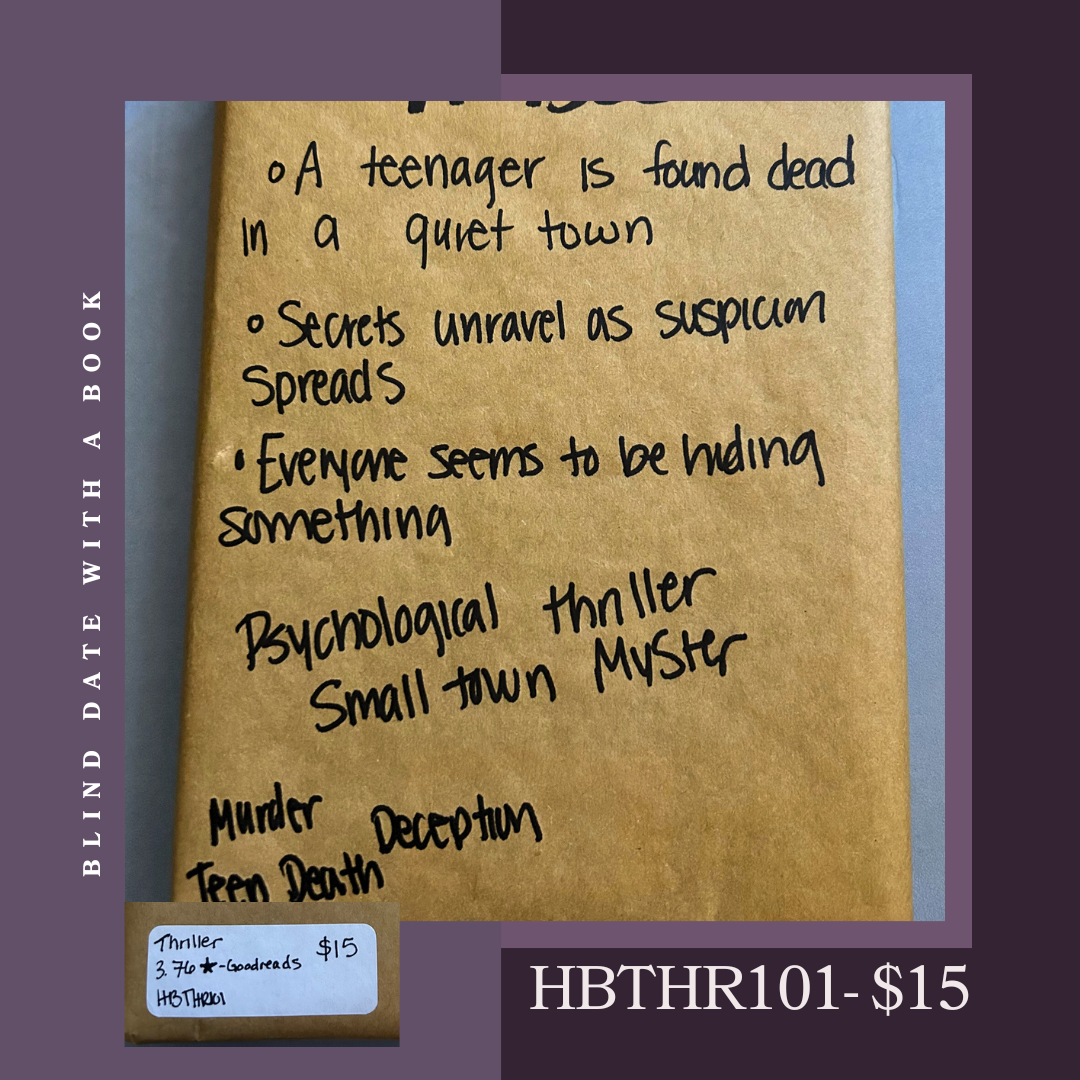 BLIND DATE WITH A BOOK
• A teenager is found dead
in a quiet town
• Secrets unravel as suspicion
spreads
• Everyone seems to be hiding
something
Psychological thriller
Small town Myster
Murder Deception
Teen Death
Thriller $15
3.76 ★-Goodreads
HBTHR101
HBTHR101- $15